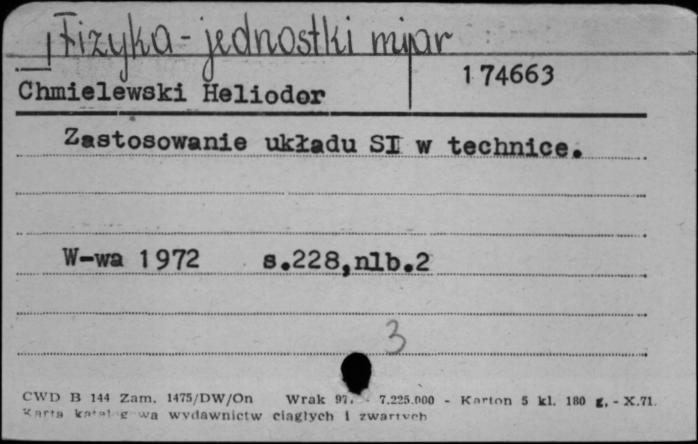 Fizyka - jednostki miar
174663
Chmielewski Heliodor
Zastosowanie układu SI w technice.
W-wa 1972 s.228,nlb.2
3
CWD B 144 Zam. 1475/DW/On Wrak 7.225.000 - Karton 5 kl. 180 g. - X.71.
Karta wa wydawnictw ciągłych i zwartych